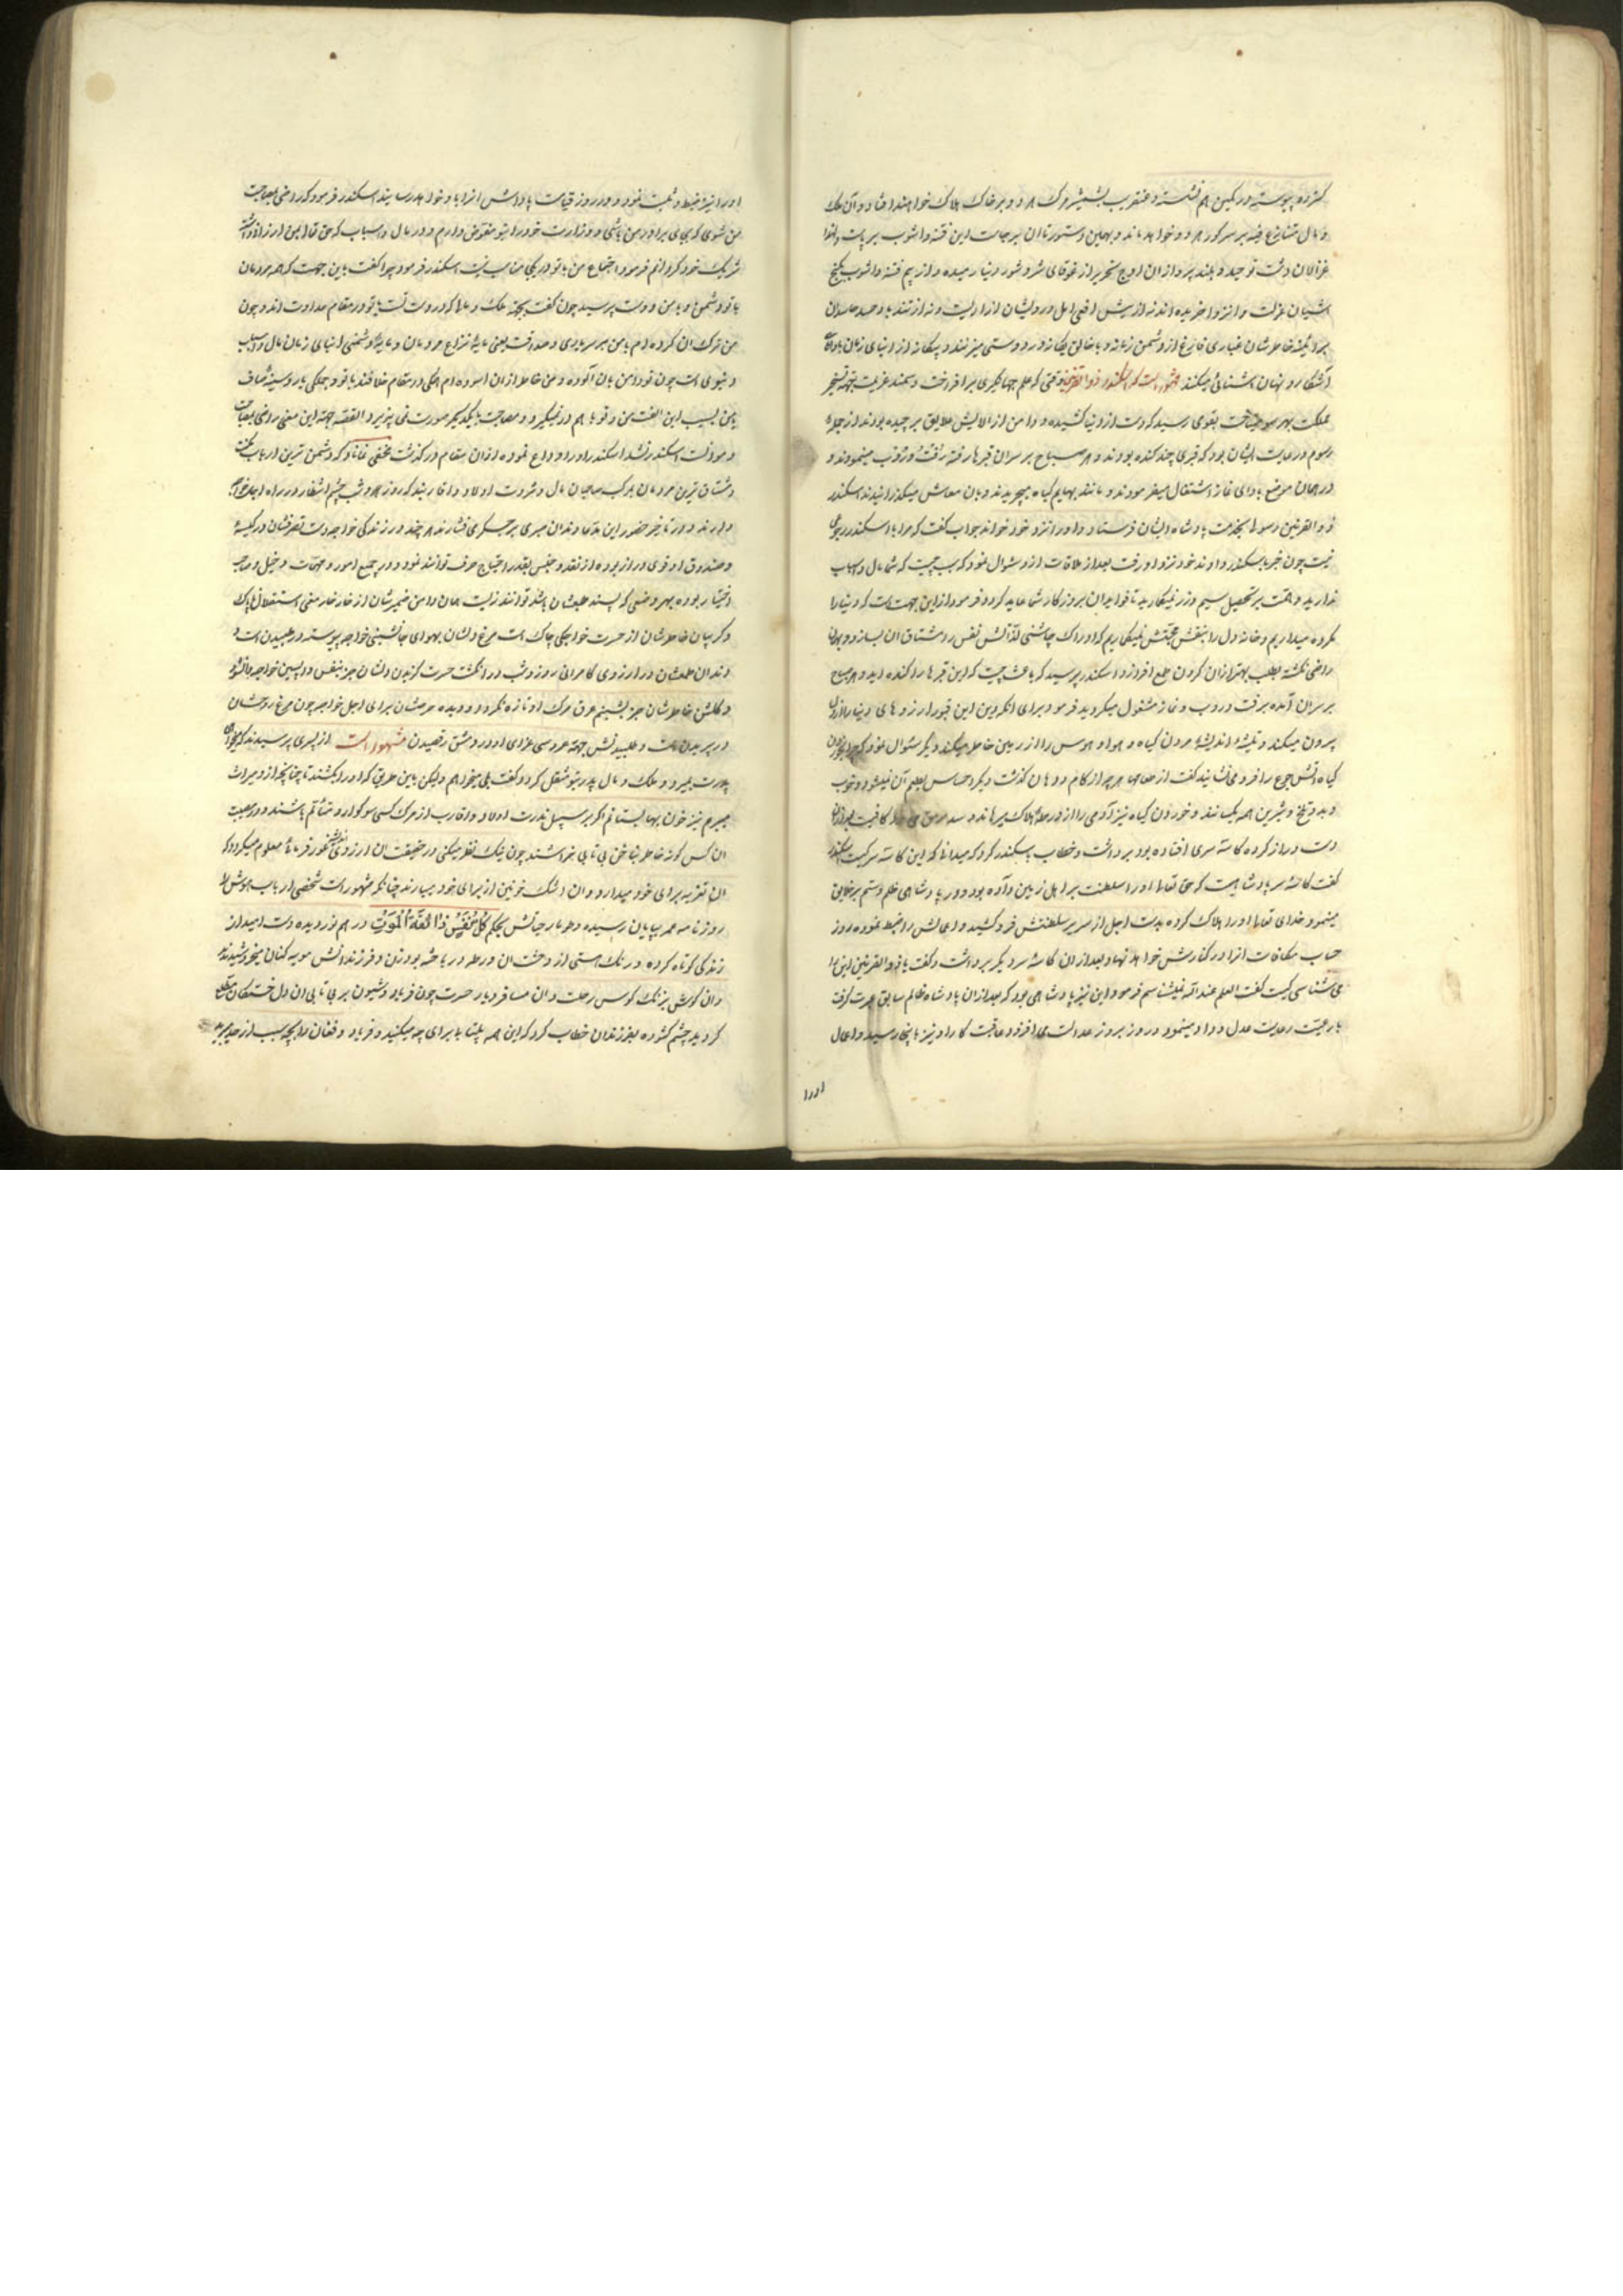 کنزده پیوسته در کمین هم نشسته و عنقریب بشمشیر مرک هر دو بر خاک هلاک خواهند افتاد و آن ملک
و مال متنازع فیه بر سر کور هر دو خواهد ماند و بهمین دستور تا ان سرحلت این فتنه و اشوب بر پاست
غزالان دشت توحید و بلند پروازان اوج تجرید از غوغای شر و شور دنیا رمیده و از بیم فتنه و اشوب بکنج
اشیان عزلت و انزوا خزیده اند نه از نیش افعی امل در دلشان ازاریست و نه از تندباد حسد حاسدان
بر ائینه خاطرشان غباری فارغ از دشمن زمانه و با خالق یکانه در دوستی میزنند و بیکانه از ابنای زمان
آشکار و نهان اشنائی میکنند مشهور است که اسکندر ذو القرنین وقتی که علم جهانگیری برافراخت و سمند عزیمت بجهة تسخیر
مملکت بهر سو میتاخت بقومی رسید که دست از دنیا کشیده و دامن از الایش علایق برچیده بودند از جمله
رسوم و رعایت ایشان بود که قبری چند کنده بودند و هر صباح بر سر ان قبرها رفته رفت و روب مینمودند و
در همان موضع بادای نماز اشتغال میفرمودند و مانند بهایم گیاه میچریدند و بان معاش میگذرانیدند اسکندر
ذو القرنین رسولی بخدمت پادشاه ایشان فرستاد و او را نزد خود خواند جواب گفت که مرا با اسکندر رجوعی
نیست چون خبر باسکندر دادند خود نزد او رفت بعد از ملاقات ازو سئوال نمود که سبب چیست که شما مال و اسباب
ندارید و همت بر تحصیل سیم و زر نمیگمارید تا فواید ان بروزکار شما عاید کردد فرمود از این جهت است که دنیا را
مکروه میداریم و خانه دل را بنقش محبتش نمینگاریم که ادراک چاشنی لذاتش نفس را مشتاق ان بسازد و بهمان
راضی نگشته بطلب بهتر از ان کردن طمع افرازد اسکندر پرسید که باعث چیست که این قبرها را کنده اید و هر صباح
بر سر ان آمده برفت و روب و نماز مشغول میکردید فرمود برای انکه دیدن این قبور ارزوهای دنیا را از دل
بیرون میکند و تیشهٔ اندیشهٔ مردن گیاه هوا و هوس را از زمین خاطر میکند دیگر سئوال نمود که چرا بخوردن
گیاه آتش جوع را فرو می نشانید گفت از طعامها هر چه از کام و دهان گذشت دیگر احساس بطعم آن نمیشود و خوب
و بد و تلخ و شیرین همه یکسانند و خوردن گیاه نیز آدمی را از ورطهٔ هلاک میرهاند و سد رمق می کافیست بعد از ان
دست دراز کرده کاسهٔ سری افتاده بود برداشت و خطاب باسکندر کرد که میدانی که این کاسه سر کیست اسکندر
گفت کاسهٔ سر پادشاهیست که حق تعالی او را سلطنت بر اهل زمین داده بود و در پادشاهی ظلم و ستم بر خلایق
مینمود خدای تعالی او را هلاک کرده بدست اجل از سریر سلطنتش فرو کشید و اعمالش را ضبط نموده روز
حساب مکافات انرا در کنارش خواهد نهاد بعد از ان کاسهٔ سر دیگر برداشت و گفت یا ذو القرنین این را
می شناسی کیست گفت العلم عند الله نمیشناسم فرمود این نیز پادشاهی بود که بعد از ان پادشاه ظالم سابق عبرت گرفت
با رعیت رعایت عدل و داد مینمود و روز بروز عدالت می افزود عاقبت کار او نیز باینجا رسید و اعمال
او را
او را نیز ضبط و ثبت نمود و در روز قیامت پاداش انرا باو خواهد رسانید اسکندر فرمود که راضی بمصاحبت
من شوی که بجای برادر من باشی و وزارت خود را بتو مفوض دارم و در مال و اسباب که حق تعالی بمن ارزانی داشته
شریک خود کردانم فرمود اجتماع من با تو در یکجا مناسب نیست اسکندر فرمود چرا گفت باین جهت که همه مردمان
با تو دشمن و با من دوست پرسید چون گفت بجهة ملک و مالی که در دست تست با تو در مقام عداوت اند و چون
من ترک ان کرده ام با من بر سر یاری و صداقت یعنی مایهٔ نزاع مردمان و مایهٔ دشمنی ابنای زمان مال و اسباب
دنیوی است چون تو دامن بان آلوده و من خاطر از ان اسوده ام همگی در مقام خلافند با تو و جملگی یار و سینه صاف
با من بسبب این الفت من و تو با هم در نمیگیرد و مصاحبت با یکدیگر صورت نمی پذیرد القصه چون این معنی راضی بمصاحبت
و موانست اسکندر نشد اسکندر او را وداع نموده از ان مقام در گذشت مخفی نماناد که دشمن ترین ارباب مکنت
و مشتاق ترین مردمان بمرک صاحبان مال و ثروت اولاد و اقاربند که روز و شب چشم انتظار در راه اجل خواجه
دارند و در تاخیر حضور این مدعا دندان صبری بر جگر می فشارند هر چند در زندگی خواجه دست تصرفشان در کیسهٔ
و صندوق او قوی دراز بوده از نقد و جنس بقدر احتیاج صرف توانند نمود و در جمیع امور و مهمات دخیل و صاحب
اختیار بوده بهر وضعی که پسند طبعشان باشد توانند زیست همان دامن ضمیرشان از خار خار معنی استقلال پاک
و گریبان خاطرشان از حسرت خواجگی چاک است مرغ دلشان بهوای جانشینی خواجه پیوسته در طپیدن است و
دندان طمعشان در ارزوی کامرانی روز و شب در انگشت حسرت گزیدن دلشان جز بنفس واپسین خواجه وا نشود
و گلشن خاطرشان جز بشبنم عرق مرک او تازه نگردد و دیده حرصشان برای اجل خواجه چون مرغ روحشان
در پریدن است و طلبیدنش بجهة عروسی عزای او در مشق رقصیدن مشهور است از پسری پرسیدند که میخواهی
پدرت بمیرد و ملک و مال پدر بتو منتقل کردد گفت بلی میخواهم ولیکن باین طریق که او را بکشند تا چنانچه ازو میراث
میبرم نیز خون بها بستانم اگر بر سبیل ندرت اولاد و اقارب از مرک کسی سوگوار و متألم باشند و در مصیبت
ان کس گونه خاطر بناخن بی تابی بخراشند چون نیک نظر میکنی و در حقیقت ان ارزوی غور فرمائی معلوم میگردد که
ان تعزیه برای خود میدارد و ان اشک خونین از برای خود میبارند چنانکه مشهور است شخصی از ارباب هوش را
روزنامه عمر بپایان رسیده و طومار حیاتش بحکم کُلُّ نَفْسٍ ذَائِقَةُ الْمَوْتِ در هم نوردیده دست امید از
زندگی کوتاه کرده و رنگ هستی از دهشت ان ورطه در باخته بود زن و فرزندانش مویه کنان میخروشیدند
و ان گوش بزنک کوس رحلت و ان مسافر دیار حسرت چون فریاد و شیون بر بی تابی ان دل خستگان مطلع
گردید چشم گشوده بفرزندان خطاب کرد که این همه بیتابی برای چه میکنید و فریاد و فغان را بچه سبب از حد میبرید